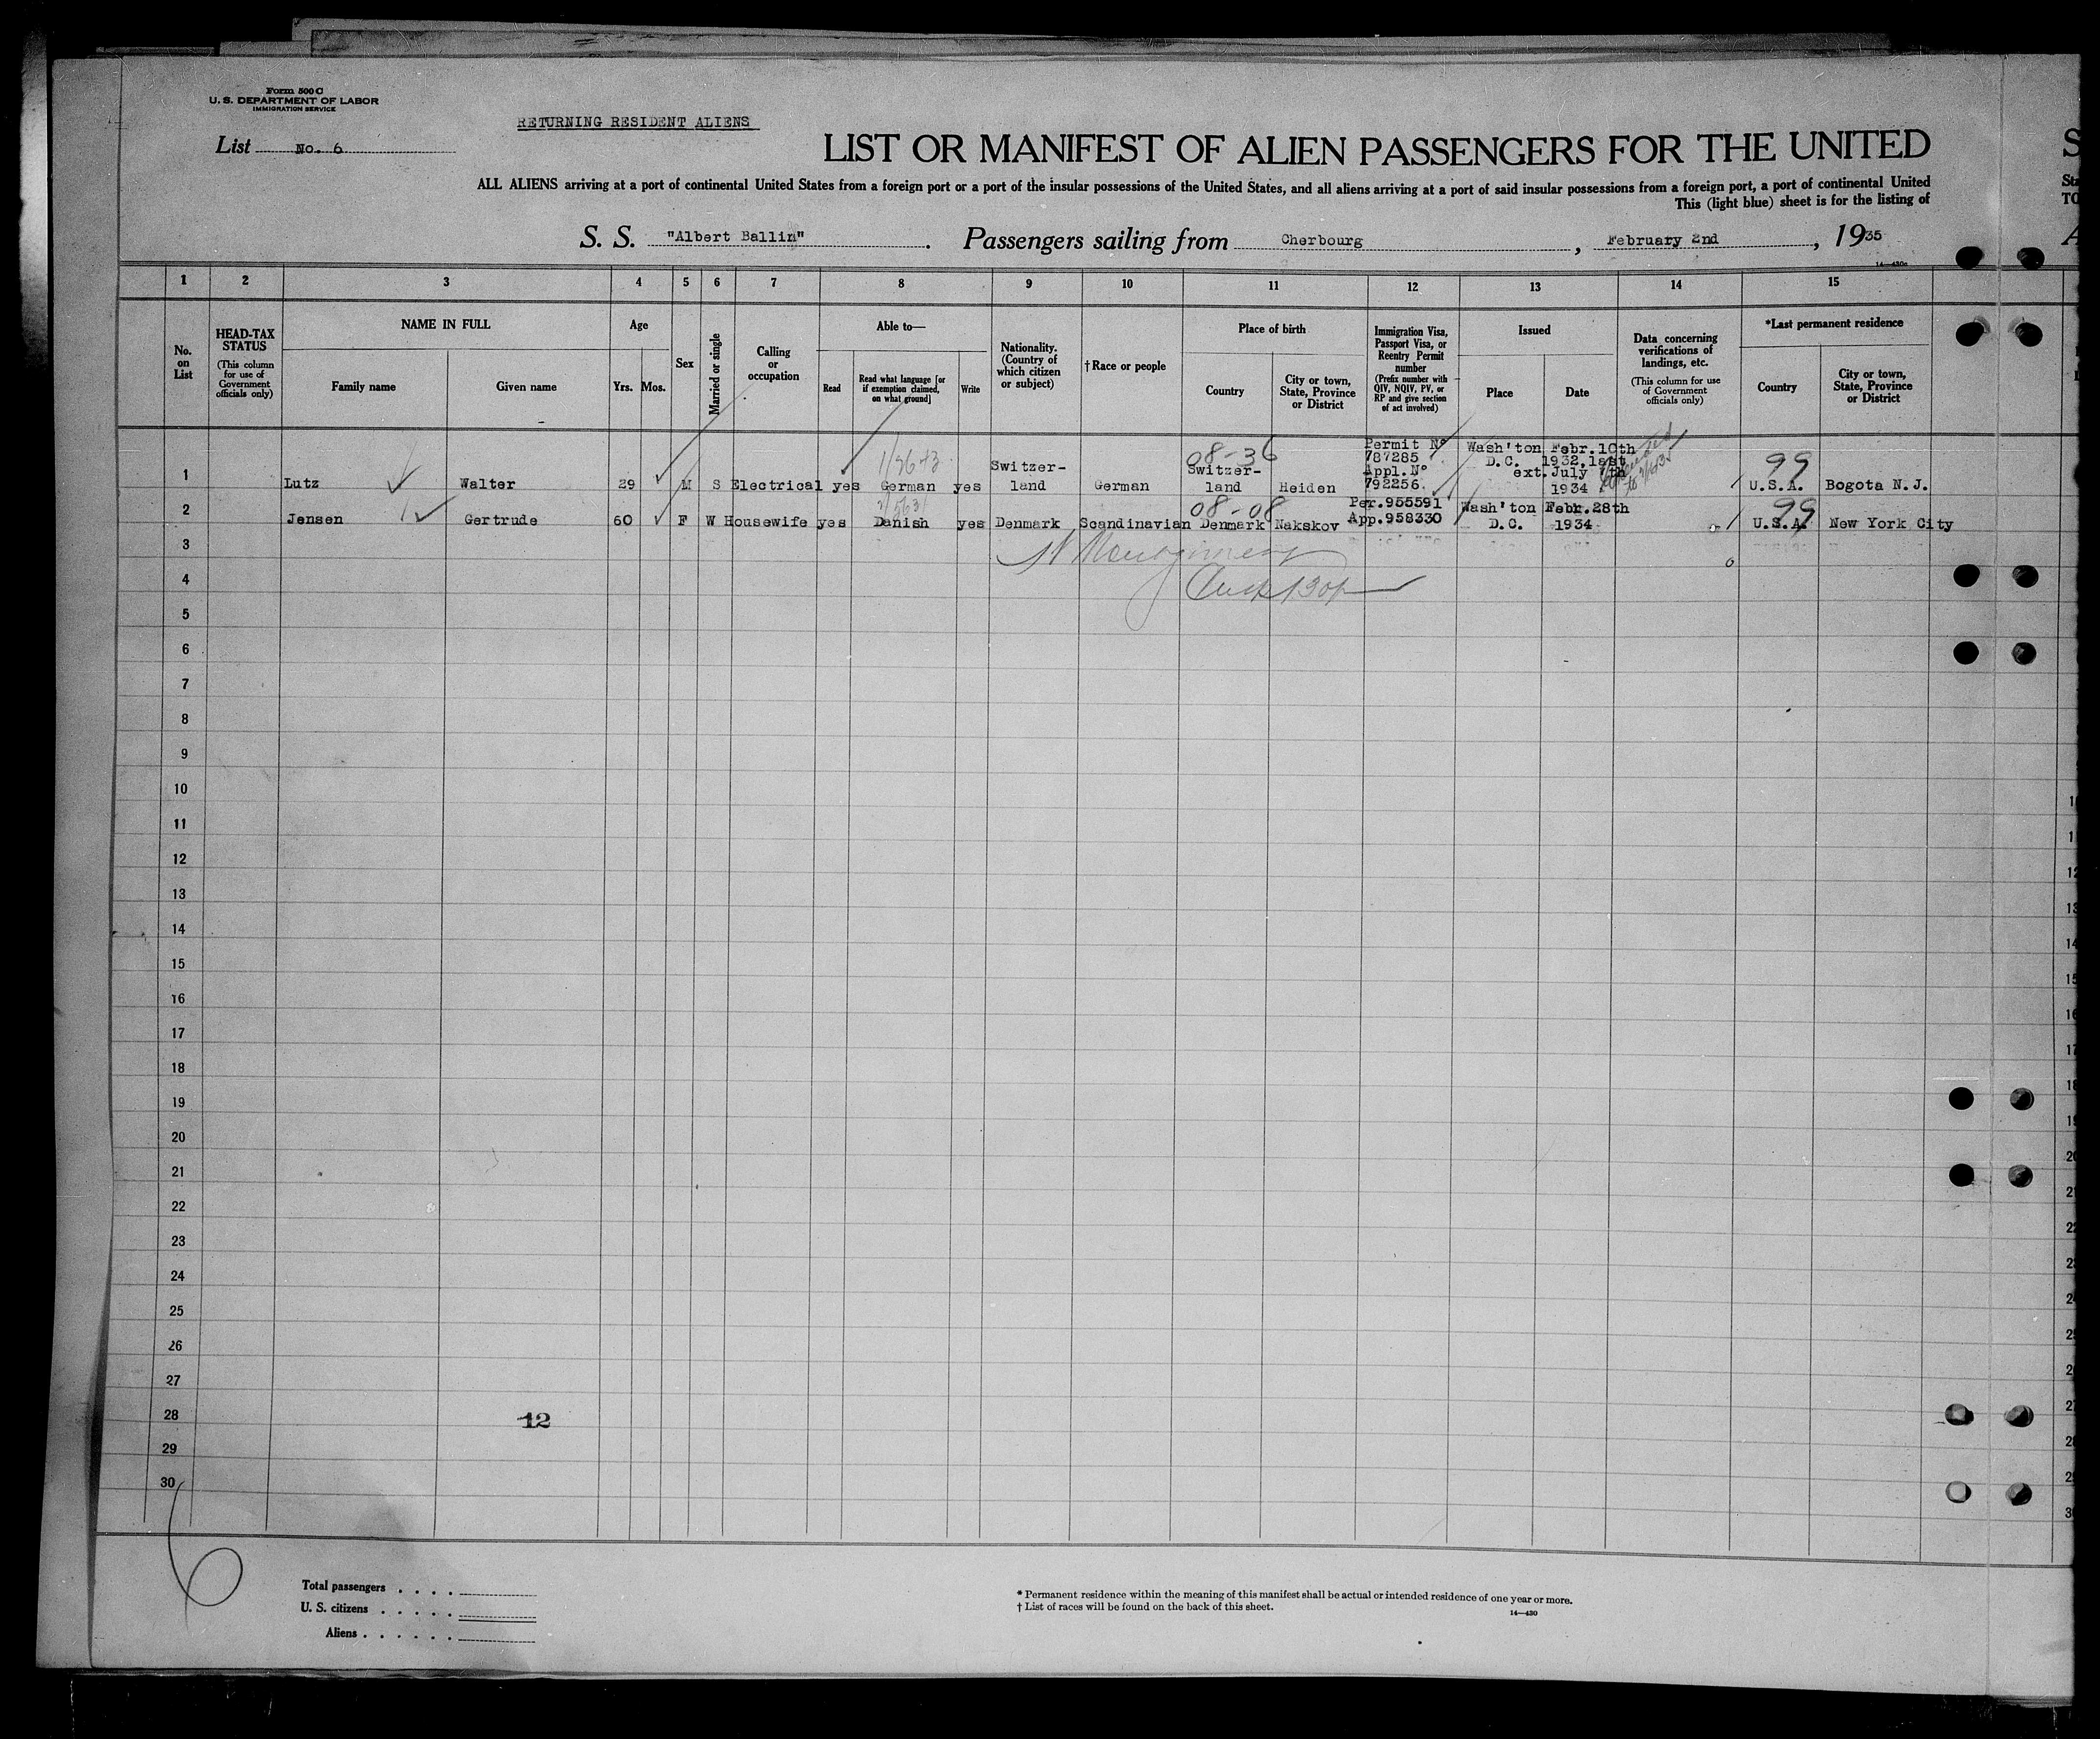 Form 500 C
U. S. DEPARTMENT OF LABOR
IMMIGRATION SERVICE
List No. 6
RETURNING RESIDENT ALIENS
LIST OR MANIFEST OF ALIEN PASSENGERS FOR THE UNITED
ALL ALIENS arriving at a port of continental United States from a foreign port or a port of the insular possessions of the United States, and all aliens arriving at a port of said insular possessions from a foreign port, a port of continental United
This (light blue) sheet is for the listing of
S. S. "Albert Ballin". Passengers sailing from Cherbourg, February 2nd, 1935
14—430c
1 2 3 4 5 6 7 8 9 10 11 12 13 14 15
No. on List
HEAD-TAX STATUS
(This column for use of Government officials only)
NAME IN FULL
Family name
Given name
Age
Yrs. Mos.
Sex
Married or single
Calling or occupation
Able to—
Read
Read what language [or if exemption claimed, on what ground]
Write
Nationality. (Country of which citizen or subject)
† Race or people
Place of birth
Country
City or town, State, Province or District
Immigration Visa, Passport Visa, or Reentry Permit number
(Prefix number with QIV, NQIV, PV, or RP and give section of act involved)
Issued
Place
Date
Data concerning verifications of landings, etc.
(This column for use of Government officials only)
*Last permanent residence
Country
City or town, State, Province or District
1 Lutz Walter 29 M S Electrical yes German yes Switzer-land German 08-36 Switzer-land Heiden Permit Nº 787285 Appl.Nº 792256. Wash'ton D.C. Febr.10th 1932,last ext.July 7th 1934 99 U.S.A. Bogota N.J.
2 Jensen Gertrude 60 F W Housewife yes Danish yes Denmark Scandinavian 08-08 Denmark Nakskov Per.955591 App.958330 Wash'ton D.C. Febr.28th 1934 99 U.S.A. New York City
3
4
5
6
7
8
9
10
11
12
13
14
15
16
17
18
19
20
21
22
23
24
25
26
27
28 12
29
30
6
Total passengers
U. S. citizens
Aliens
* Permanent residence within the meaning of this manifest shall be actual or intended residence of one year or more.
† List of races will be found on the back of this sheet.
14—430